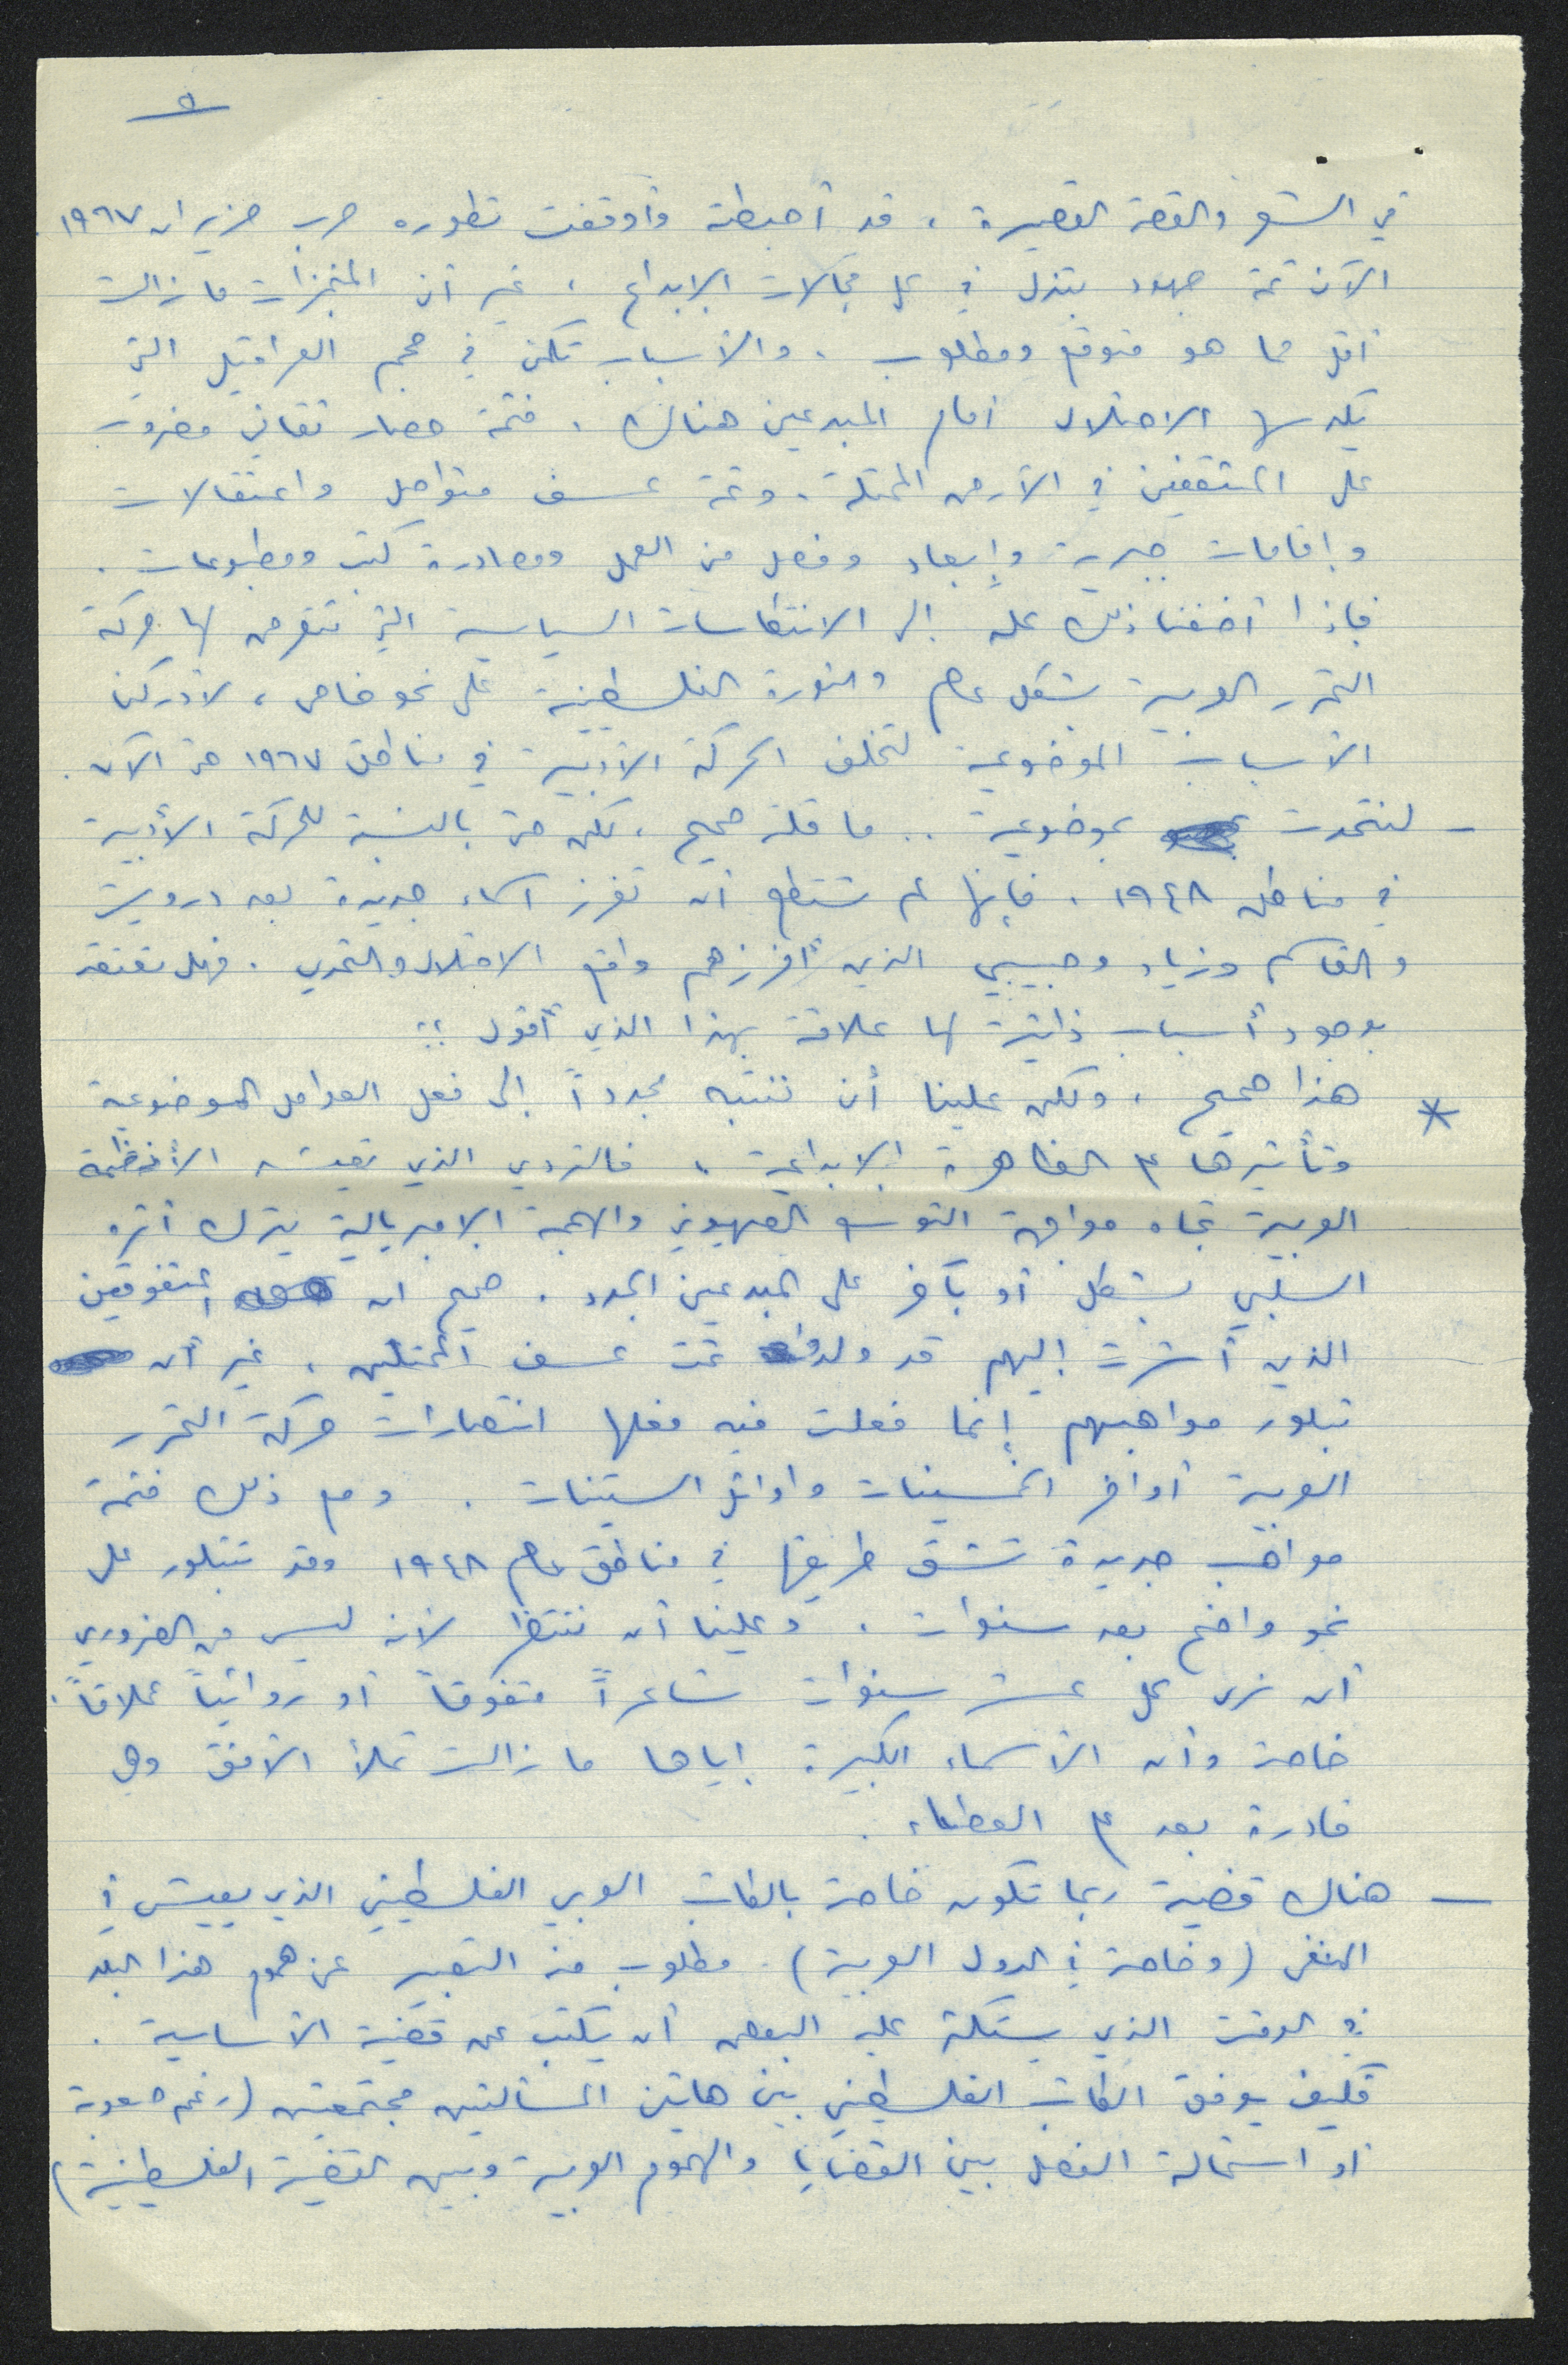 ٥
في الشعر والقصة القصيرة ، قد أحبطته وأوقفت تطوره حرب حزيران ١٩٦٧ .
الآن ثمة جهود تبذل في كل مجالات الإبداع ، غير أن المنجزات ما زالت
أقل مما هو متوقع ومطلوب . والأسباب تكمن في حجم العراقيل التي
يكدسها الاحتلال أمام المبدعين هناك . فثمة حصار ثقافي مضروب
على المثقفين في الأرض المحتلة . وثمة عسف متواصل واعتقالات
وإقامات جبرية وإبعاد وفصل من العمل ومصادرة كتب ومطبوعات .
فإذا أضفنا ذلك كله إلى الانتكاسات السياسية التي تتعرض لها حركة
التحرر العربية بشكل عام والثورة الفلسطينية على نحو خاص ، لأدركنا
الأسباب الموضوعية لتخلف الحركة الأدبية في مناطق ١٩٦٧ حتى الآن .
- لنتحدث بموضوعية .. ما قلته صحيح ، لكن حتى بالنسبة للحركة الأدبية
في مناطق ١٩٤٨ . فإنها لم تستطع أن تفرز أسماء جديدة بعد درويش
والقاسم وزياد وحبيبي الذين أفرزهم واقع الاحتلال والتحدي . فهل تعتقد
بوجود أسباب ذاتية لها علاقة بهذا الذي أقول ؟؟
* هذا صحيح ، ولكن علينا أن ننتبه مجدداً إلى فعل العوامل الموضوعية
وتأثيرها على الظاهرة الإبداعية ، فالتردي الذي تعيشه الأنظمة
العربية تجاه مواجهة التوسع الصهيوني والهجمة الامبريالية يترك أثره
السلبي بشكل أو بآخر على المبدعين الجدد . صحيح ان المتفوقين
الذين أشرت إليهم قد ولدوا تحت عسف المحتلين ، غير أن
تبلور مواهبهم إنما فعلت فيه فعلها انتصارات حركة التحرر
العربية أواخر الخمسينات واوائل الستينات . ومع ذلك فثمة
مواهب جديدة تشق طريقها في مناطق عام ١٩٤٨ وقد تتبلور على
نحو واضح بعد سنوات . وعلينا أن ننتظر لأنه ليس من الضروري
أن نرى كل عشر سنوات شاعراً متفوقاً أو روائياً عملاقاً .
خاصة وأن الأسماء الكبيرة إياها ما زالت تملأ الأفق وهي
قادرة بعد على العطاء .
- هناك قضية ربما تكون خاصة بالكاتب العربي الفلسطيني الذي يعيش في
المنفى (وخاصة في الدول العربية) . مطلوب منه التعبير عن هموم هذا البلد
في الوقت الذي يستكثر عليه البعض أن يكتب عن قضيته الأساسية .
فكيف يوفق الكاتب الفلسطيني بين هاتين المسألتين مجتمعتين (رغم صعوبة
أو استحالة الفصل بين القضايا والهموم العربية وبين القضية الفلسطينية)